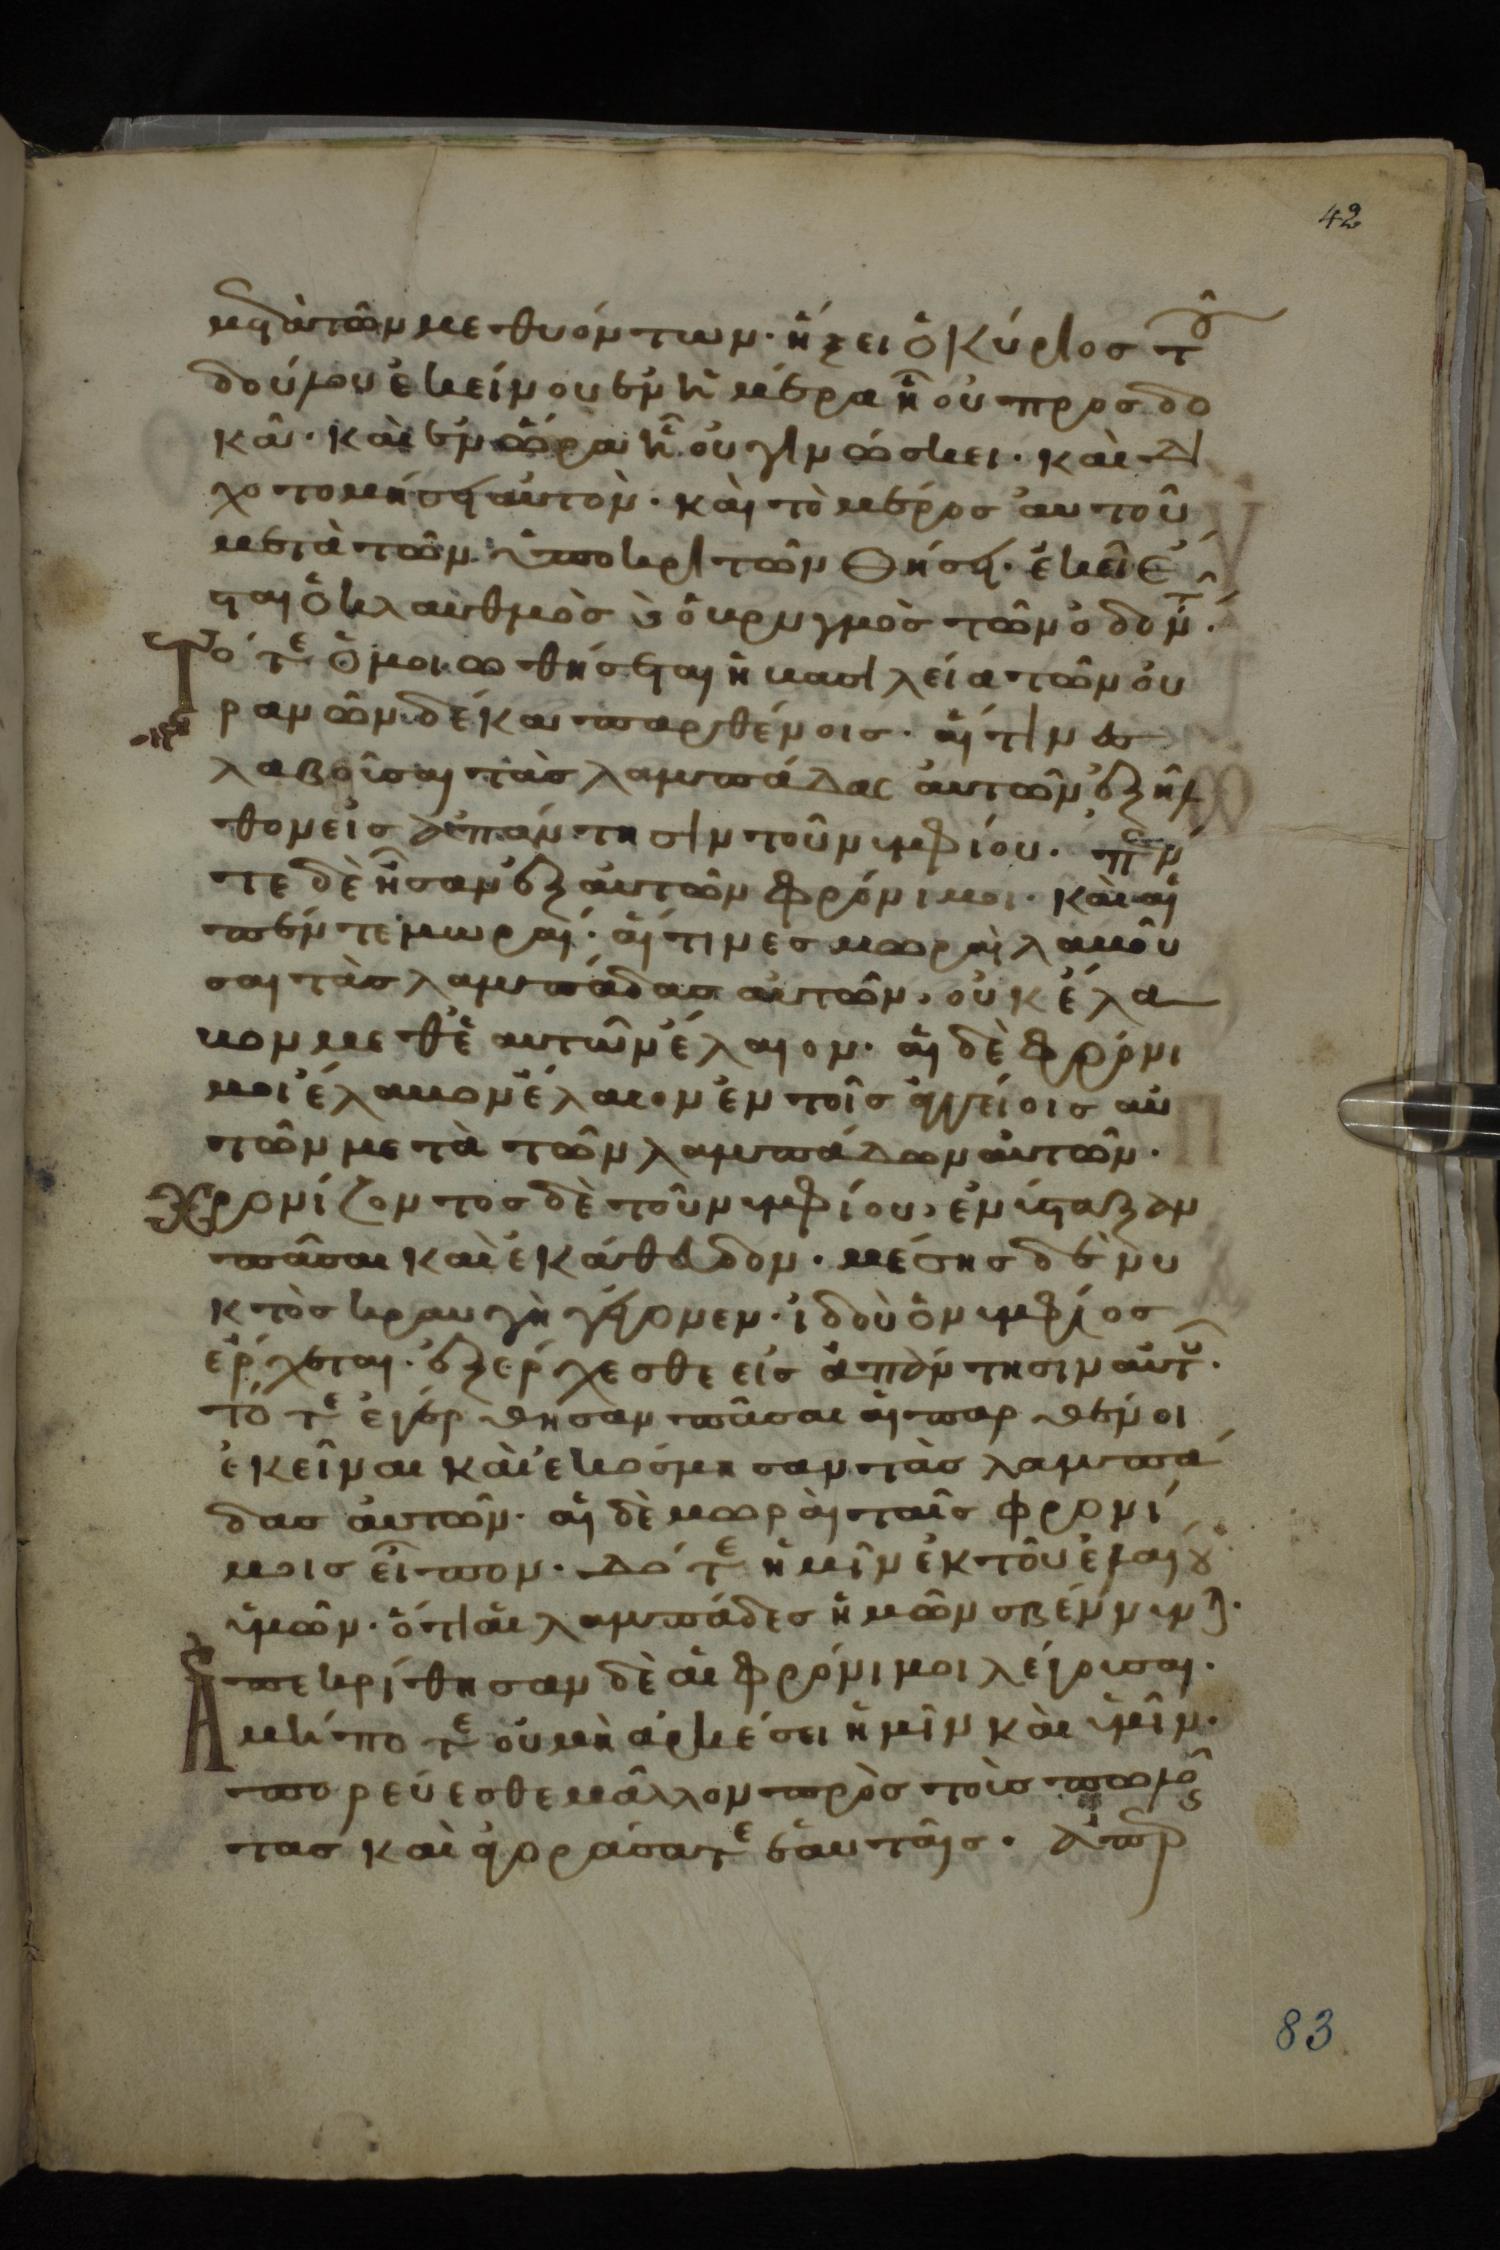 42
μετὰ τῶν μεθυόντων· ἥξει ὁ κύριος τοῦ
δούλου ἐκείνου ἐν ἡμέρα ἧ οὐ προσδο
κᾶ· καὶ ἐν ὥρα ἧ οὐ γινώσκει· καὶ δι
χοτομήσει αὐτὸν· καὶ τὸ μέρος αὐτοῦ
μετὰ τῶν ὑποκριτῶν θήσει· ἐκεῖ ἔ
σται ὁ κλαυθμὸς καὶ ὁ βρυγμὸς τῶν ὀδόντ·
Τότε ὁμοιωθήσεται ἡ βασιλεία τῶν οὐ
ρανῶν δέκα παρθένοις· αἵτινες
λαβοῦσαι τὰς λαμπάδας αὐτῶν ἐξῆλ
θον εἰς ἀπάντησιν τοῦ νυμφίου· πέν
τε δὲ ἦσαν ἐξ αὐτῶν φρόνιμοι· καὶ αἱ
πέντε μωραί· αἵτινες μωραὶ λαβοῦ
σαι τὰς λαμπάδας αὐτῶν, οὐκ ἔλα
βον μεθ' ἑαυτῶν ἔλαιον· αἱ δὲ φρόνι
μοι ἔλαβον ἔλαιον ἐν τοῖς ἀγγείοις αὐ
τῶν μετὰ τῶν λαμπάδων αὐτῶν·
Χρονίζοντος δὲ τοῦ νυμφίου, ἐνύσταξαν
πᾶσαι καὶ ἐκάθευδον· μέσης δὲ νυ
κτὸς κραυγὴ γέγονεν· ἰδοὺ ὁ νυμφίος
ἔρχεται· ἐξέρχεσθε εἰς ἀπάντησιν αὐτοῦ·
τότε ἐγέρθησαν πᾶσαι αἱ παρθένοι
ἐκεῖναι καὶ ἐκόσμησαν τὰς λαμπά
δας αὐτῶν· αἱ δὲ μωραὶ ταῖς φρονί
μοις εἶπον· δότε ἡμῖν ἐκ τοῦ ἐλαίου
ὑμῶν· ὅτι αἱ λαμπάδες ἡμῶν σβέννυνται·
Ἀπεκρίθησαν δὲ αἱ φρόνιμοι λέγουσαι·
μήποτε οὐ μὴ ἀρκέσει ἡμῖν καὶ ὑμῖν·
πορεύεσθε μᾶλλον πρὸς τοὺς πωλοῦν
τας καὶ ἀγοράσατε ἑαυταῖς· ἀπερ
83